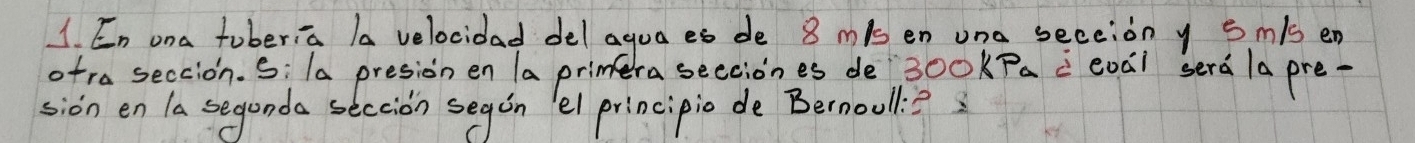 1. En una tubería la velocidad del agua es de 8 m/s en una sección y 5 m/s en
otra sección. Si la presión en la primera sección es de 300KPa ¿ cuál será la pre-
sión en la segunda sección según el principio de Bernoulli?